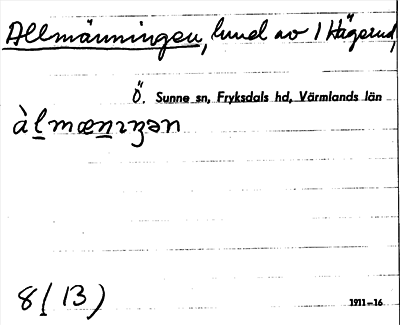 Allmänningen, lund av 1 Hägerud,
Ö. Sunne sn, Fryksdals hd, Värmlands län
àlmænıŋən
8 (13)
1911–16